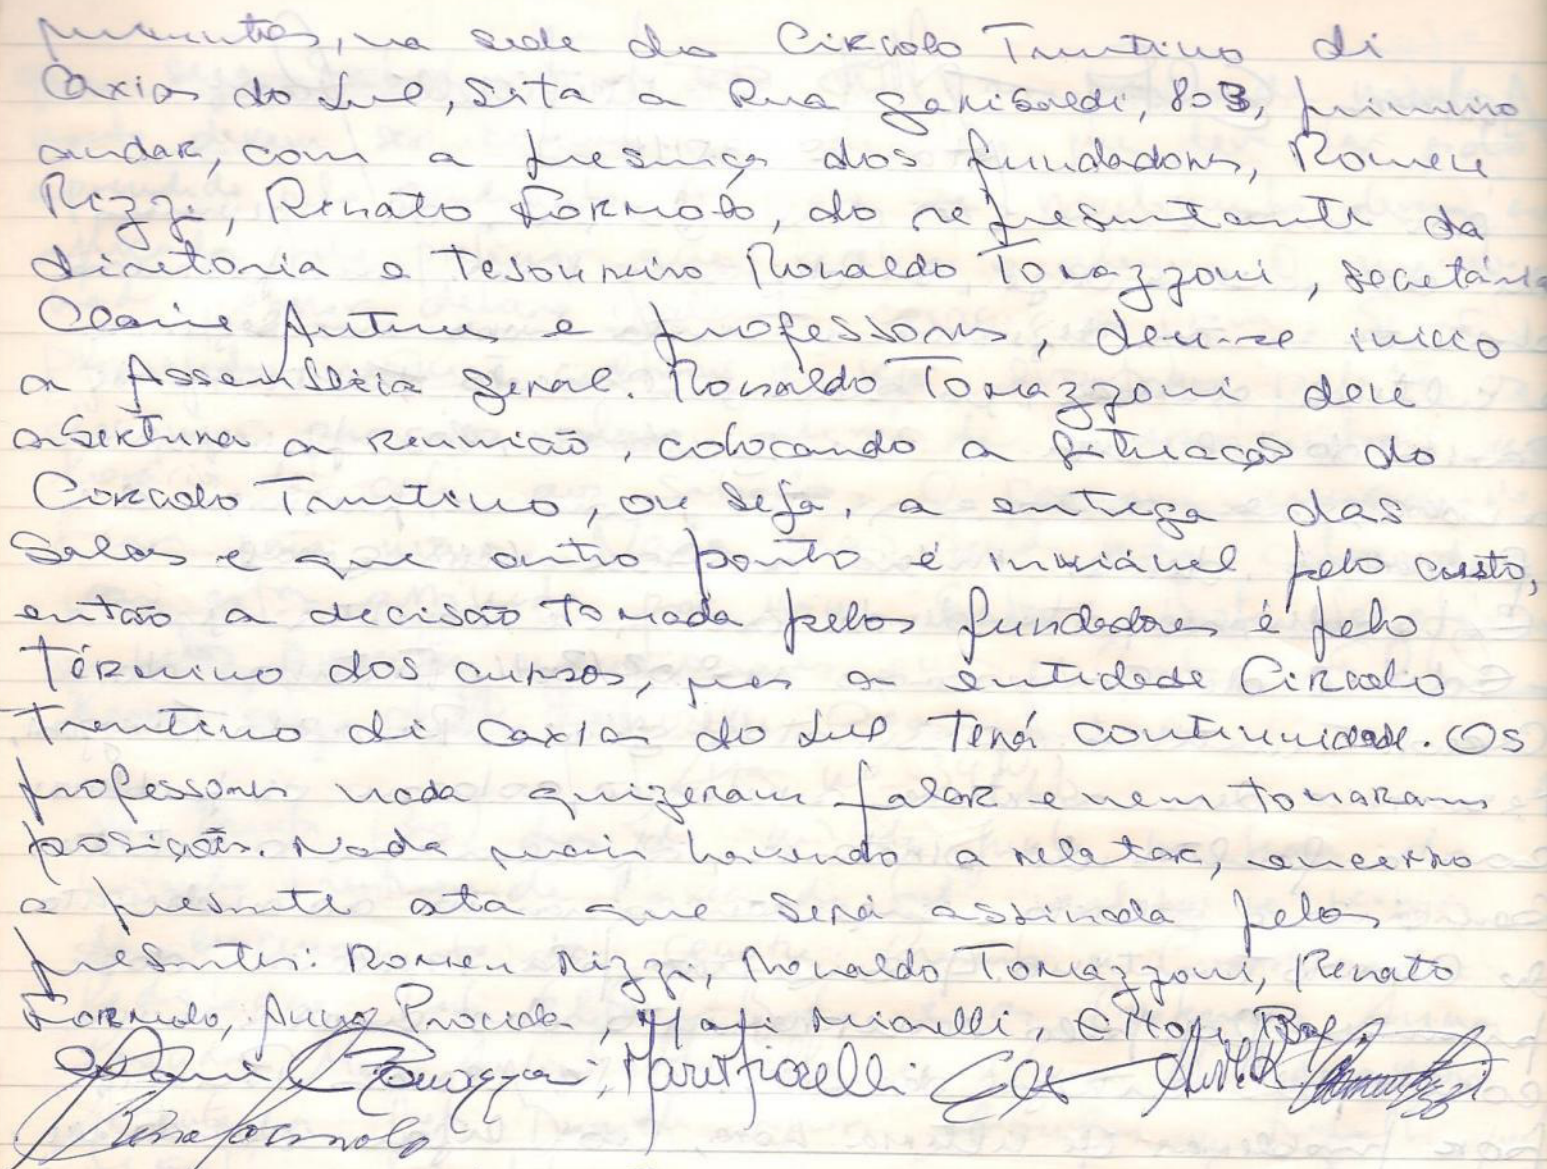 presentes, na sede do Circolo Trentino di
Caxias do Sul, Sita a Rua Garibaldi, 803, primeiro
andar, com a presença dos fundadores, Romeu
Rizzi, Renato Formolo, do representante da
diretoria o Tesoureiro Ronaldo Tomazzoni, secretária
Claire Antunes e professores, deu-se inicio
a Assembléia Geral. Ronaldo Tomazzoni deu
abertura a reunião, colocando a situação do
Circolo Trentino, ou seja, a entrega das
Salas e que outro ponto é inviável pelo custo,
então a decisão tomada pelos fundadores é pelo
Término dos cursos, mas a entidade Circolo
Trentino di Caxias do Sul Terá continuidade. Os
professores nada quizeram falar e nem tomaram
posição. Nada mais havendo a relatar, encerro
a presente ata que será assinada pelos
presentes: Romeu Rizzi, Ronaldo Tomazzoni, Renato
Formolo,